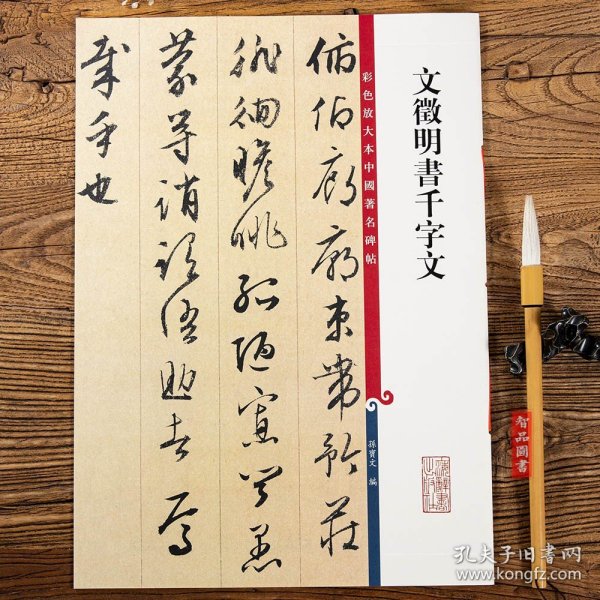 俯仰廊廟束帶矜莊
徘徊瞻眺孤陋寡聞愚
蒙等誚謂語助者焉
哉乎也
彩色放大本中國著名碑帖
文徵明書千字文
孫寶文 編
上海辭書出版社
智品圖書
孔夫子旧书网
www.kongfz.com